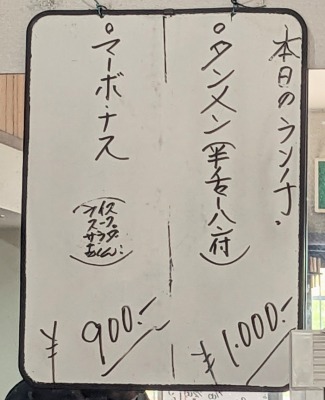 本日のランチ.
○タンメン(半チャーハン付)
¥1.000:-
○マーボ・ナス
(ライス
スープ
サラダ
おしんこ)
¥900:-